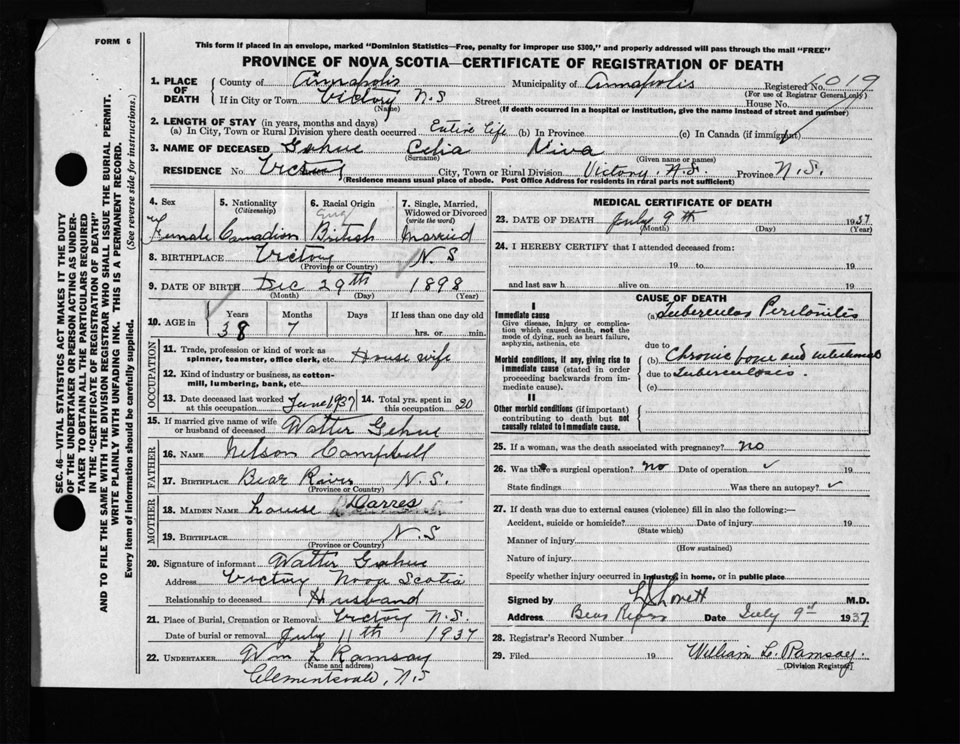 FORM 6
This form if placed in an envelope, marked "Dominion Statistics—Free, penalty for improper use $300," and properly addressed will pass through the mail "FREE"
PROVINCE OF NOVA SCOTIA—CERTIFICATE OF REGISTRATION OF DEATH
1. PLACE OF DEATH County of Annapolis Municipality of Annapolis Registered No. 6019
(For use of Registrar General only)
If in City or Town Victory N.S Street House No.
(Name) (If death occurred in a hospital or institution, give the name instead of street and number)
2. LENGTH OF STAY (in years, months and days)
(a) In City, Town or Rural Division where death occurred Entire life (b) In Province (c) In Canada (if immigrant)
3. NAME OF DECEASED Gehue Celia Niva
(Surname) (Given name or names)
RESIDENCE No. Victory City, Town or Rural Division Victory, N.S. Province N.S.
(Residence means usual place of abode. Post Office Address for residents in rural parts not sufficient)
4. Sex Female
5. Nationality (Citizenship) Canadian
6. Racial Origin British
7. Single, Married, Widowed or Divorced (write the word) Married
8. BIRTHPLACE Victory N S
(Province or Country)
9. DATE OF BIRTH Dec 29th 1898
(Month) (Day) (Year)
10. AGE in Years Months Days If less than one day old
38 7 hrs. or min.
OCCUPATION
11. Trade, profession or kind of work as spinner, teamster, office clerk, etc. House wife
12. Kind of industry or business, as cotton-mill, lumbering, bank, etc.
13. Date deceased last worked at this occupation June 1937
14. Total yrs. spent in this occupation 20
15. If married give name of wife or husband of deceased Walter Gehue
FATHER
16. NAME Nelson Campbell
17. BIRTHPLACE Bear River N.S.
(Province or Country)
MOTHER
18. MAIDEN NAME Louise Darres
19. BIRTHPLACE N.S
(Province or Country)
20. Signature of informant Walter Gehue
Address Victory Nova Scotia
Relationship to deceased Husband
21. Place of Burial, Cremation or Removal Victory N.S.
Date of burial or removal July 11th 1937
22. UNDERTAKER Wm L Ramsay
(Name and address)
Clementsvale, N.S
MEDICAL CERTIFICATE OF DEATH
23. DATE OF DEATH July 9th 1937
(Month) (Day) (Year)
24. I HEREBY CERTIFY that I attended deceased from:
19 to 19
and last saw h alive on 19
CAUSE OF DEATH
I
Immediate cause (a) Tuberculos Peritonitis
Give disease, injury or complication which caused death, not the mode of dying, such as heart failure, asphyxia, asthenia, etc
due to
Morbid conditions, if any, giving rise to immediate cause (stated in order proceeding backwards from immediate cause).
(b) Chronic bone and intestinal
due to Tuberculoses.
(c)
II
Other morbid conditions (if important) contributing to death but not causally related to immediate cause.
25. If a woman, was the death associated with pregnancy? no
26. Was there a surgical operation? no Date of operation 19
State findings Was there an autopsy?
27. If death was due to external causes (violence) fill in also the following:—
Accident, suicide or homicide? Date of injury 19
(State which)
Manner of injury
(How sustained)
Nature of injury
Specify whether injury occurred in industry, in home, or in public place
Signed by L J Lovett M.D.
Address Bear River Date July 9th 1937
28. Registrar's Record Number
29. Filed 19 William L. Ramsay.
(Division Registrar)
SEC. 46—VITAL STATISTICS ACT MAKES IT THE DUTY
OF THE UNDERTAKER OR PERSON ACTING AS UNDER-
TAKER TO OBTAIN ALL THE PARTICULARS REQUIRED
IN THE "CERTIFICATE OF REGISTRATION OF DEATH"
AND TO FILE THE SAME WITH THE DIVISION REGISTRAR WHO SHALL ISSUE THE BURIAL PERMIT.
WRITE PLAINLY WITH UNFADING INK. THIS IS A PERMANENT RECORD.
Every item of information should be carefully supplied. (See reverse side for instructions.)